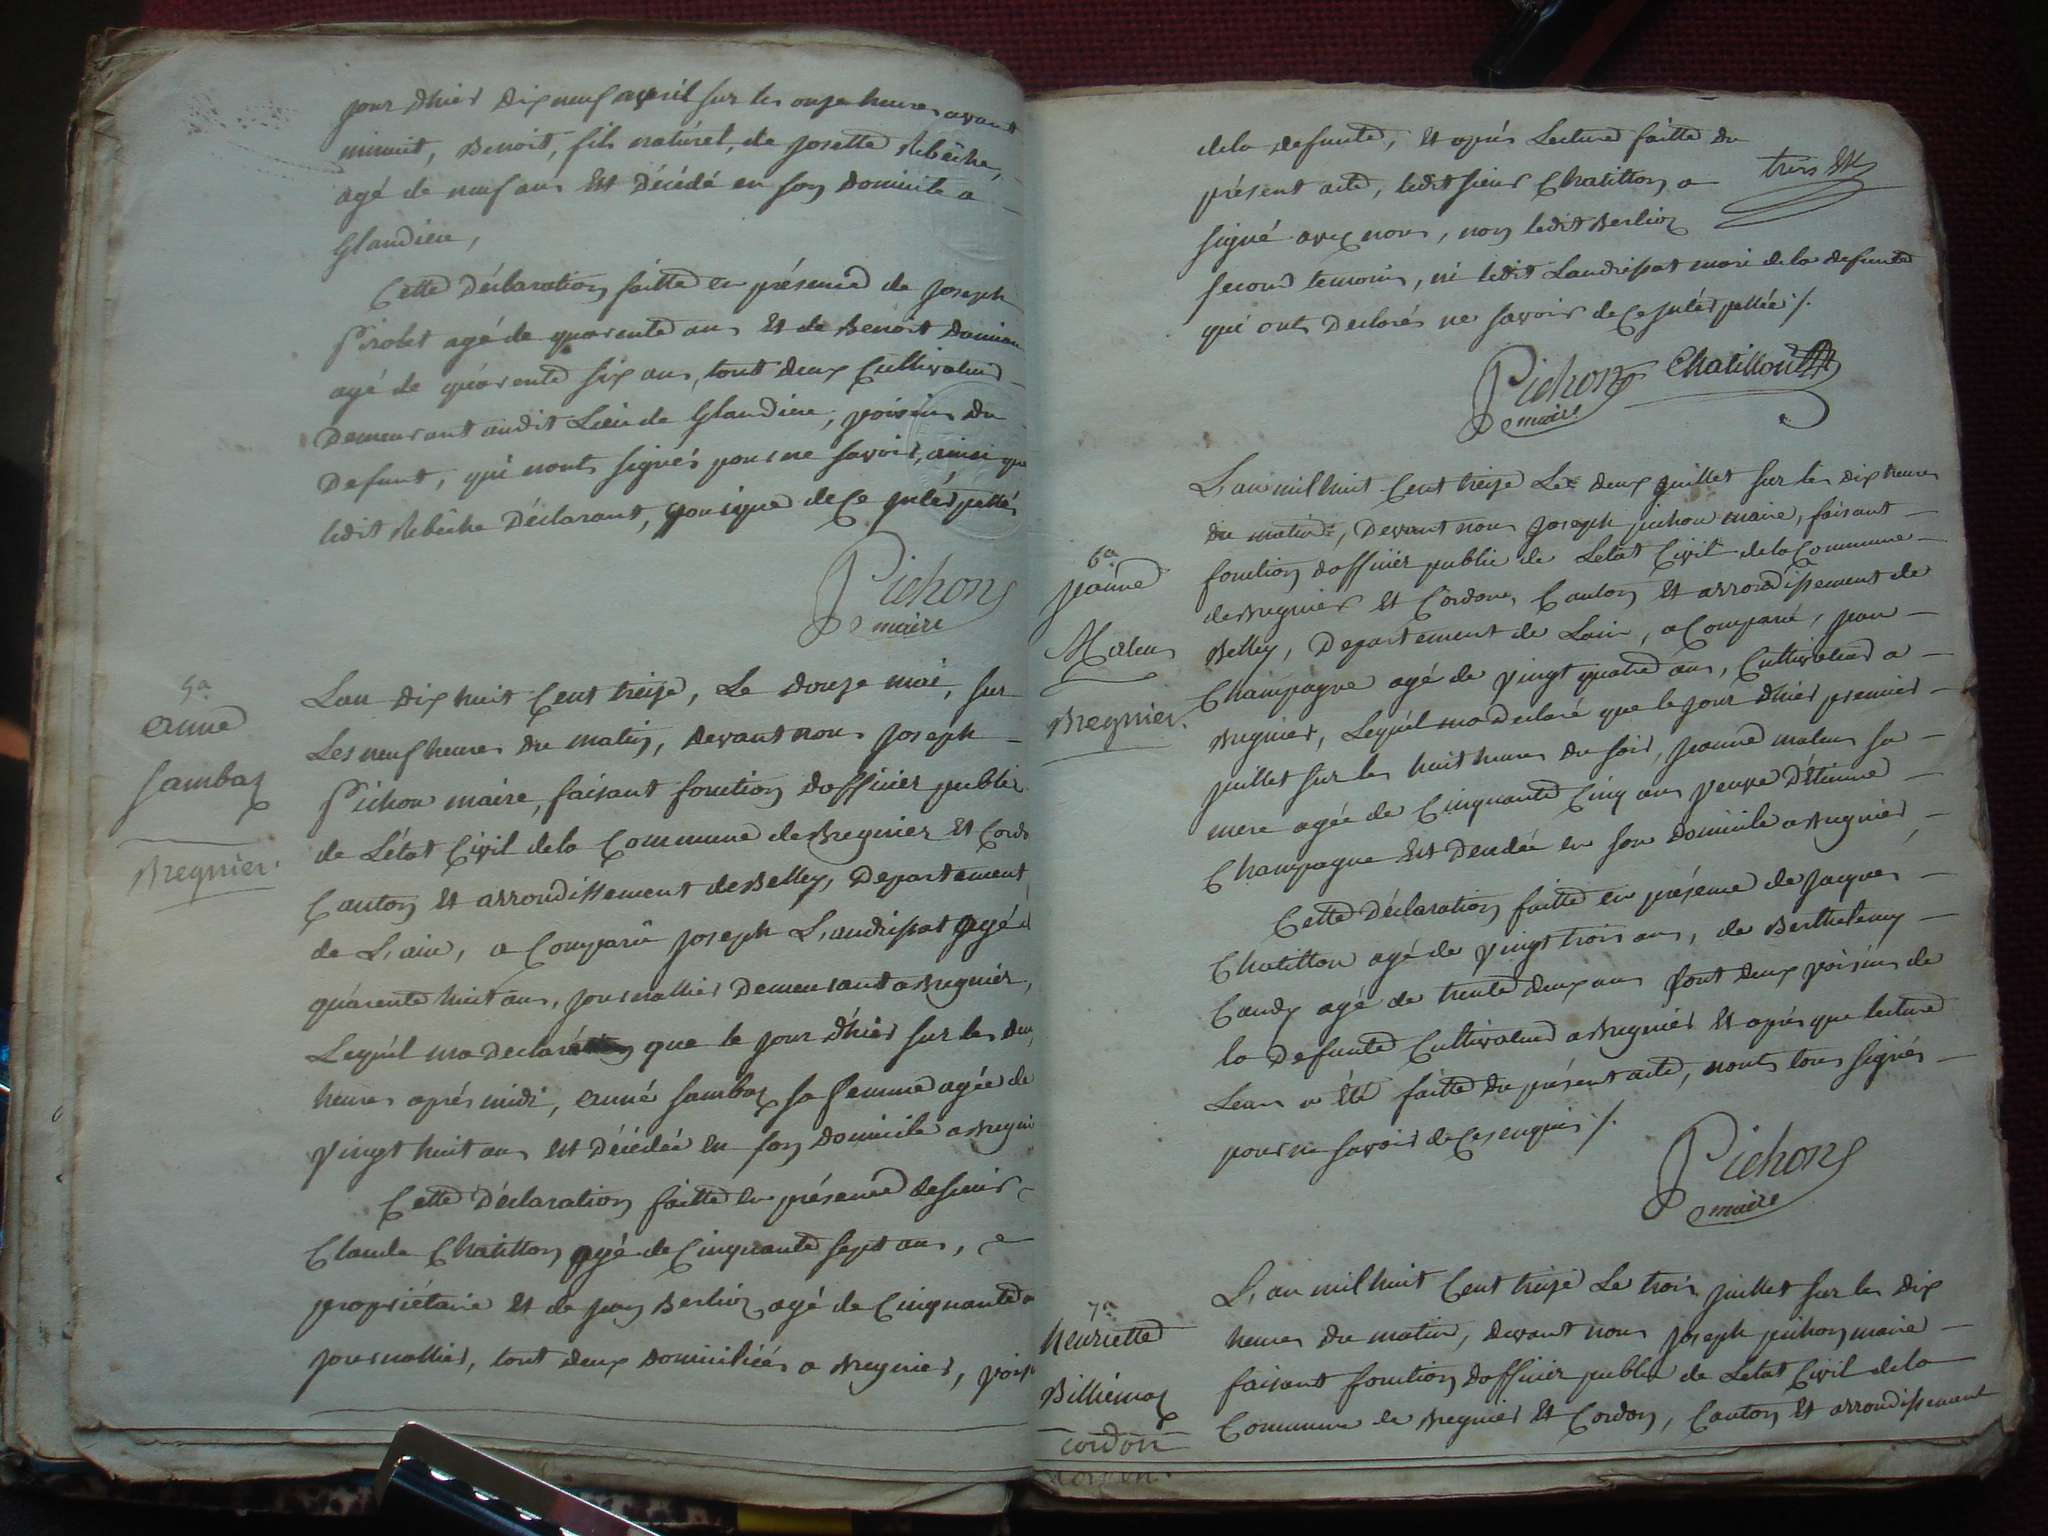 jour dhier dix neuf avril sur les onze heures avant
minuit, Benoit, fils naturel, de josette Rebêche,
agé de neuf ans Est Décédé en son Domicile a
Glandieu,
Cette Déclaration faitte en présence de joseph
Pirolet agé de quarente ans Et de Benoit Damian
agé de quarente six ans, tout deux Cultivateurs
Demeurant audit Lieu de Glandieu, voisins du
Defunt, qui nonts signés pour ne savoir, ainsi que
ledit Rebêche Déclarant, quoique de Ce interpellés
Pichon
maire
5e.
anne
Sambaz
Bregnier.
Lan dix huit Cent treize, Le douze mai, sur
Les neuf heures du matin, devant nous joseph
Pichon maire, faisant fonction dofficier public
de Létat Civil dela Commune de Bregnier Et Cordon
Canton Et arrondissement de Belley, Departement
de L'ain, a Comparu joseph Landrissat agé de
quarente huit ans, journallier Demeurant a Bregnier,
Lequel ma declaré que le jour dhier sur les deux
heures aprés midi, anne Sambaz sa femme agée de
vingt huit ans est Décédée en son Domicile a Bregnier
Cette Déclaration faitte en présence de sieur
Claude Chatillon agé de Cinquante sept ans,
propriétaire Et de jean Berlioz agé de Cinquante ans
journallier, tout deux Domiciliés a Bregnier, voisins
dela defunte, Et aprés Lecture faitte du
présent acte, ledit sieur Chatillon a
signé avec nous, non ledit Berlioz
second temoin, ni ledit Landrissat mari dela defunte
qui onts Declarés ne savoir de Ce interpellés /.
Pichon Chatillon
maire
6e.
jeanne
Maleu
Bregnier.
L'an mil huit Cent treize Le deux juillet sur les dix heures
du matin, Devant nous joseph pichon maire, faisant
fonction dofficier public de Letat Civil dela Commune
de Bregnier Et Cordon, Canton Et arrondissement de
Belley, Departement de Lain, a Comparu, jean
Champagne agé de vingt quatre ans, Cultivateur a
Bregnier, Lequel ma declaré que le jour dhier premier
juillet sur les huit heures du soir, jeanne maleu sa
mere agée de Cinquante Cinq ans veuve D'Etienne
Champagne Est Decedée en son domicile a Bregnier,
Cette Déclaration faitte en présence de jacques
Chatillon agé de vingt trois ans, de Berthelemy
Caudy agé de trente deux ans tout deux voisins de
la Defunte Cultivateurs a Bregnier Et aprés que lecture
Leur a été faitte du présent acte, nonts tous signés
pour ne savoir de Ce enquis /.
Pichon
maire
7e.
henriette
Billiémaz
Cordon
L'an mil huit Cent treize Le trois juillet sur les dix
heures du matin, devant nous joseph pichon maire
faisant fonction dofficier public de Létat Civil dela
Commune de Bregnier Et Cordon, Canton Et arrondissement